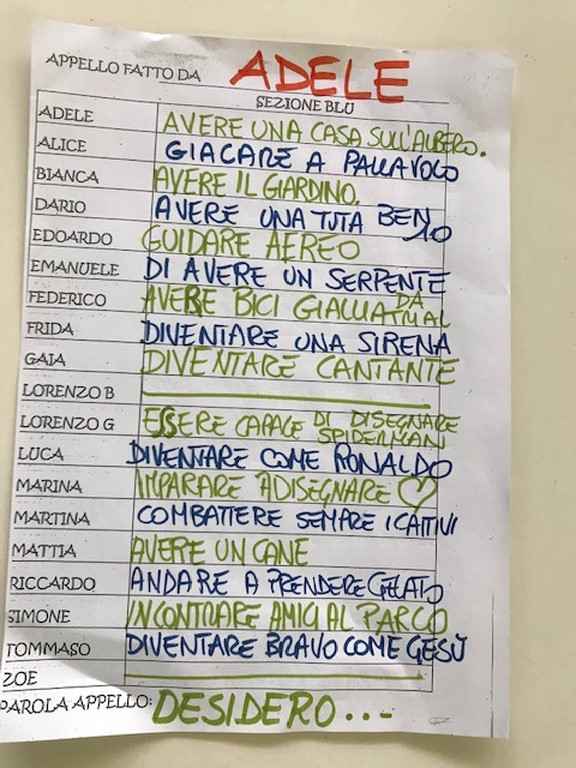 APPELLO FATTO DA ADELE
SEZIONE BLU
ADELE AVERE UNA CASA SULL'ALBERO.
ALICE GIACARE A PALLAVOLO
BIANCA AVERE IL GIARDINO.
DARIO AVERE UNA TUTA BEN 10
EDOARDO GUIDARE AEREO
EMANUELE DI AVERE UN SERPENTE
FEDERICO AVERE BICI GIALLA DA
FRIDA DIVENTARE UNA SIRENA
GAIA DIVENTARE CANTANTE
LORENZO B
LORENZO G ESSERE CAPACE DI DISEGNARE
SPIDERMAN
LUCA DIVENTARE COME RONALDO
MARINA IMPARARE A DISEGNARE
MARTINA COMBATTERE SEMPRE I CATTIVI
MATTIA AVERE UN CANE
RICCARDO ANDARE A PRENDERE GELATO
SIMONE INCONTRARE AMICI AL PARCO
TOMMASO DIVENTARE BRAVO COME GESÙ
ZOE
PAROLA APPELLO: DESIDERO...-